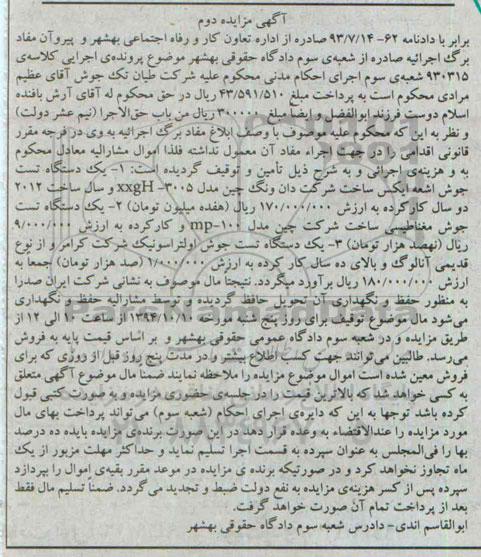 آگهی مزایده دوم
برابر با دادنامه ۶۲-۹۳/۷/۱۴ صادره از اداره تعاون کار و رفاه اجتماعی بهشهر و پیروآن مفاد
برگ اجرائیه صادره از شعبه‌ی سوم دادگاه حقوقی بهشهر موضوع پرونده‌ی اجرایی کلاسه‌ی
۹۳۰۳۱۵ شعبه‌ی سوم اجرای احکام مدنی محکوم علیه شرکت طیان تک جوش آقای عظیم
مرادی محکوم است به پرداخت مبلغ ۴۳/۵۹۱/۵۱۰ ریال در حق محکوم له آقای آرش بافنده
اسلام دوست فرزند ابوالفضل و ایضا مبلغ ۳۰۰۰۰۰ ریال من باب حق‌الاجرا (نیم عشر دولت)
و نظر به این که محکوم علیه موصوف با وصف ابلاغ مفاد برگ اجرائیه به وی در فرجه مقرر
قانونی اقدامی را در جهت اجراء مفاد آن معمول نداشته فلذا اموال مشارالیه معادل محکوم
به و هزینه‌ی اجرائی و به شرح ذیل تأمین و توقیف گردیده است: ۱- یک دستگاه تست
جوش اشعه ایکس ساخت شرکت دان ونگ چین مدل xxgH -۳۰۰۵ و سال ساخت ۲۰۱۲
دو سال کارکرده به ارزش ۱۷۰/۰۰۰/۰۰۰ ریال (هفده میلیون تومان) ۲- یک دستگاه تست
جوش مغناطیسی ساخت شرکت چین مدل mp-۱۰۰ و کارکرده به ارزش ۹/۰۰۰/۰۰۰
ریال (نهصد هزار تومان) ۳- یک دستگاه تست جوش اولتراسونیک شرکت کرامر و از نوع
قدیمی آنالوگ و بالای ده سال کار کرده به ارزش ۱/۰۰۰/۰۰۰ (صد هزار تومان) جمعا به
ارزش ۱۸۰/۰۰۰/۰۰۰ ریال برآورد میگردد. نتیجتا مال موصوف به نشانی شرکت ایران صدرا
به منظور حفظ و نگهداری آن تحویل حافظ گردیده و توسط مشارالیه حفظ و نگهداری
می‌شود مال موضوع توقیف برای روز پنج شنبه مورخه ۱۳۹۴/۱۰/۱۰ از ساعت ۱۰ الی ۱۲ از
طریق مزایده و در شعبه سوم دادگاه عمومی حقوقی بهشهر و بر اساس قیمت پایه به فروش
می‌رسد. طالبین می‌توانند جهت کسب اطلاع بیشتر را در مدت پنج روز قبل از روزی که برای
فروش معین شده است اموال موضوع مزایده را ملاحظه نمایند ضمناً مال موضوع آگهی متعلق
به کسی خواهد شد که بالاترین قیمت را در جلسه‌ی حضوری مزایده و به صورت کتبی قبول
کرده باشد توجها به این که دایره‌ی اجرای احکام (شعبه سوم) می‌تواند پرداخت بهای مال
مورد مزایده را عندالاقتضاء به وعده قرار دهد در این صورت برنده‌ی مزایده بایده ده درصد
بها را فی‌المجلس به عنوان سپرده به قسمت اجرا تسلیم نماید و حداکثر مهلت مزبور از یک
ماه تجاوز نخواهد کرد و در صورتیکه برنده ی مزایده در موعد مقرر بقیه‌ی اموال را بپردازد
سپرده پس از کسر هزینه‌ی مزایده به نفع دولت ضبط و تجدید می‌گردد. ضمناً تسلیم مال فقط
بعد از پرداخت تمام آن صورت خواهد گرفت.
ابوالقاسم اندی- دادرس شعبه سوم دادگاه حقوقی بهشهر